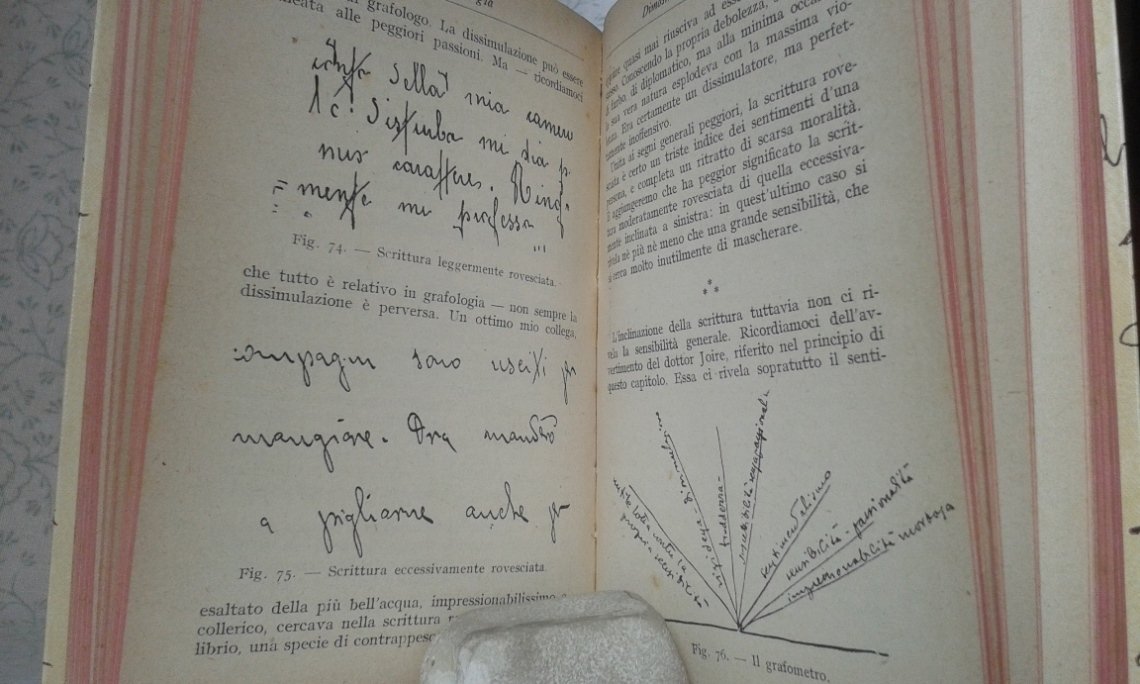 grafologo. La dissimulazione può essere
alle peggiori passioni. Ma — ricordiamoci
della mia camera
Disturba mi dia p
carattere. Ring.
= mente mi professo
...
Fig. 74. — Scrittura leggermente rovesciata.
che tutto è relativo in grafologia — non sempre la
dissimulazione è perversa. Un ottimo mio collega,
compagni sono usciti per
mangiare. Ora manderò
a pigliarne anche pr
Fig. 75. — Scrittura eccessivamente rovesciata.
esaltato della più bell'acqua, impressionabilissimo e
collerico, cercava nella scrittura
librio, una specie di contrappeso
quasi mai riusciva ad
Conoscendo la propria debolezza,
di diplomatico, ma alla minima
sua vera natura esplodeva con la massima vio-
lenza. Era certamente un dissimulatore, ma perfet-
tamente inoffensivo.
Unita ai segni generali peggiori, la scrittura rove-
sciata è certo un triste indice dei sentimenti d'una
persona, e completa un ritratto di scarsa moralità.
aggiungeremo che ha peggior significato la scrit-
tura moderatamente rovesciata di quella eccessiva-
mente inclinata a sinistra: in quest'ultimo caso si
rivela nè più nè meno che una grande sensibilità, che
si cerca molto inutilmente di mascherare.
* * *
L'inclinazione della scrittura tuttavia non ci ri-
vela la sensibilità generale. Ricordiamoci dell'av-
vertimento del dottor Joire, riferito nel principio di
questo capitolo. Essa ci rivela sopratutto il senti-
inutile lotta contro la
propria sensibilità
rigidezza - dissimulazione
freddezza -
sensibilità
sentimentalismo
sensibilità - passionalità
impressionabilità morbosa
Fig. 76. — Il grafometro.